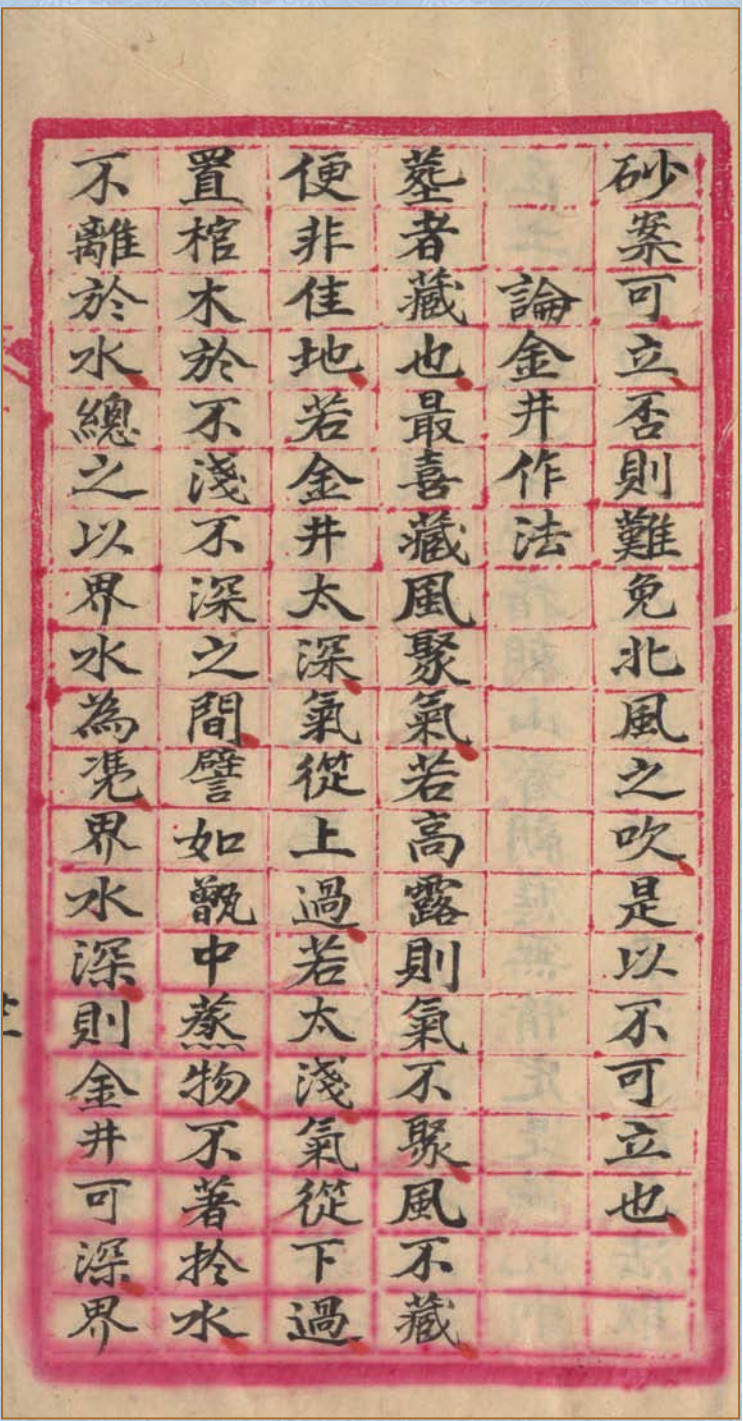 砂案可立否則難免北風之吹是以不可立也
論金井作法
塟者藏也最喜藏風聚氣若高露則氣不聚風不藏
便非佳地若金井太深氣從上過若太淺氣從下過
置棺木於不淺不深之間譬如甑中蒸物不著扵水
不離於水總之以界水為凴界水深則金井可深界